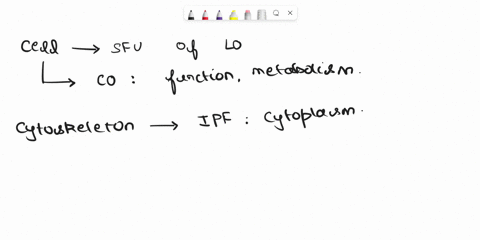 Cell → SFU of LO
↳ CO : function, metabolism.
Cytoskeleton → IPF : Cytoplasm.